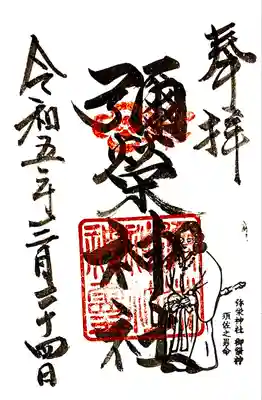 奉拝
彌栄神社
令和五年三月二十四日
弥栄神社 御祭神
須佐之男命